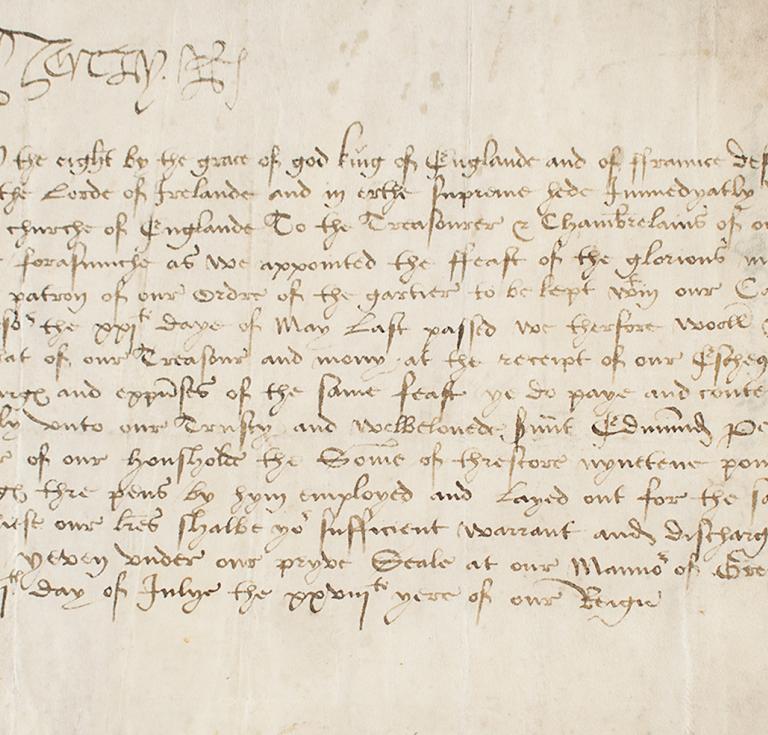 Henry R
the eight by the grace of god king of Englande and of ffraunce def
the Lorde of Irelande and in erthe supreme hede Immedyatly
churche of Englande To the Treasourer & Chambrelains of o
forasmuche as we appointed the ffeast of the glorious m
patron of our Ordre of the gartier to be kept wtin our Ca
the xxith daye of May Last passed we therfore wooll
at of our Treasour and mony at the receipt of our Escheq
and expnses of the same feast ye do paye and conte
ly vnto our Trusty and welbeloued sruint Edmund Pe
of our housholde the Some of threscore nynetene poun
thre pens by hym employed and Layed out for the sa
iese our lres shalbe yor sufficient warrant and discharg
yeven vnder our pryve Seale at our Mannor of Gre
day of Julye the xxviiith yere of our Reigne